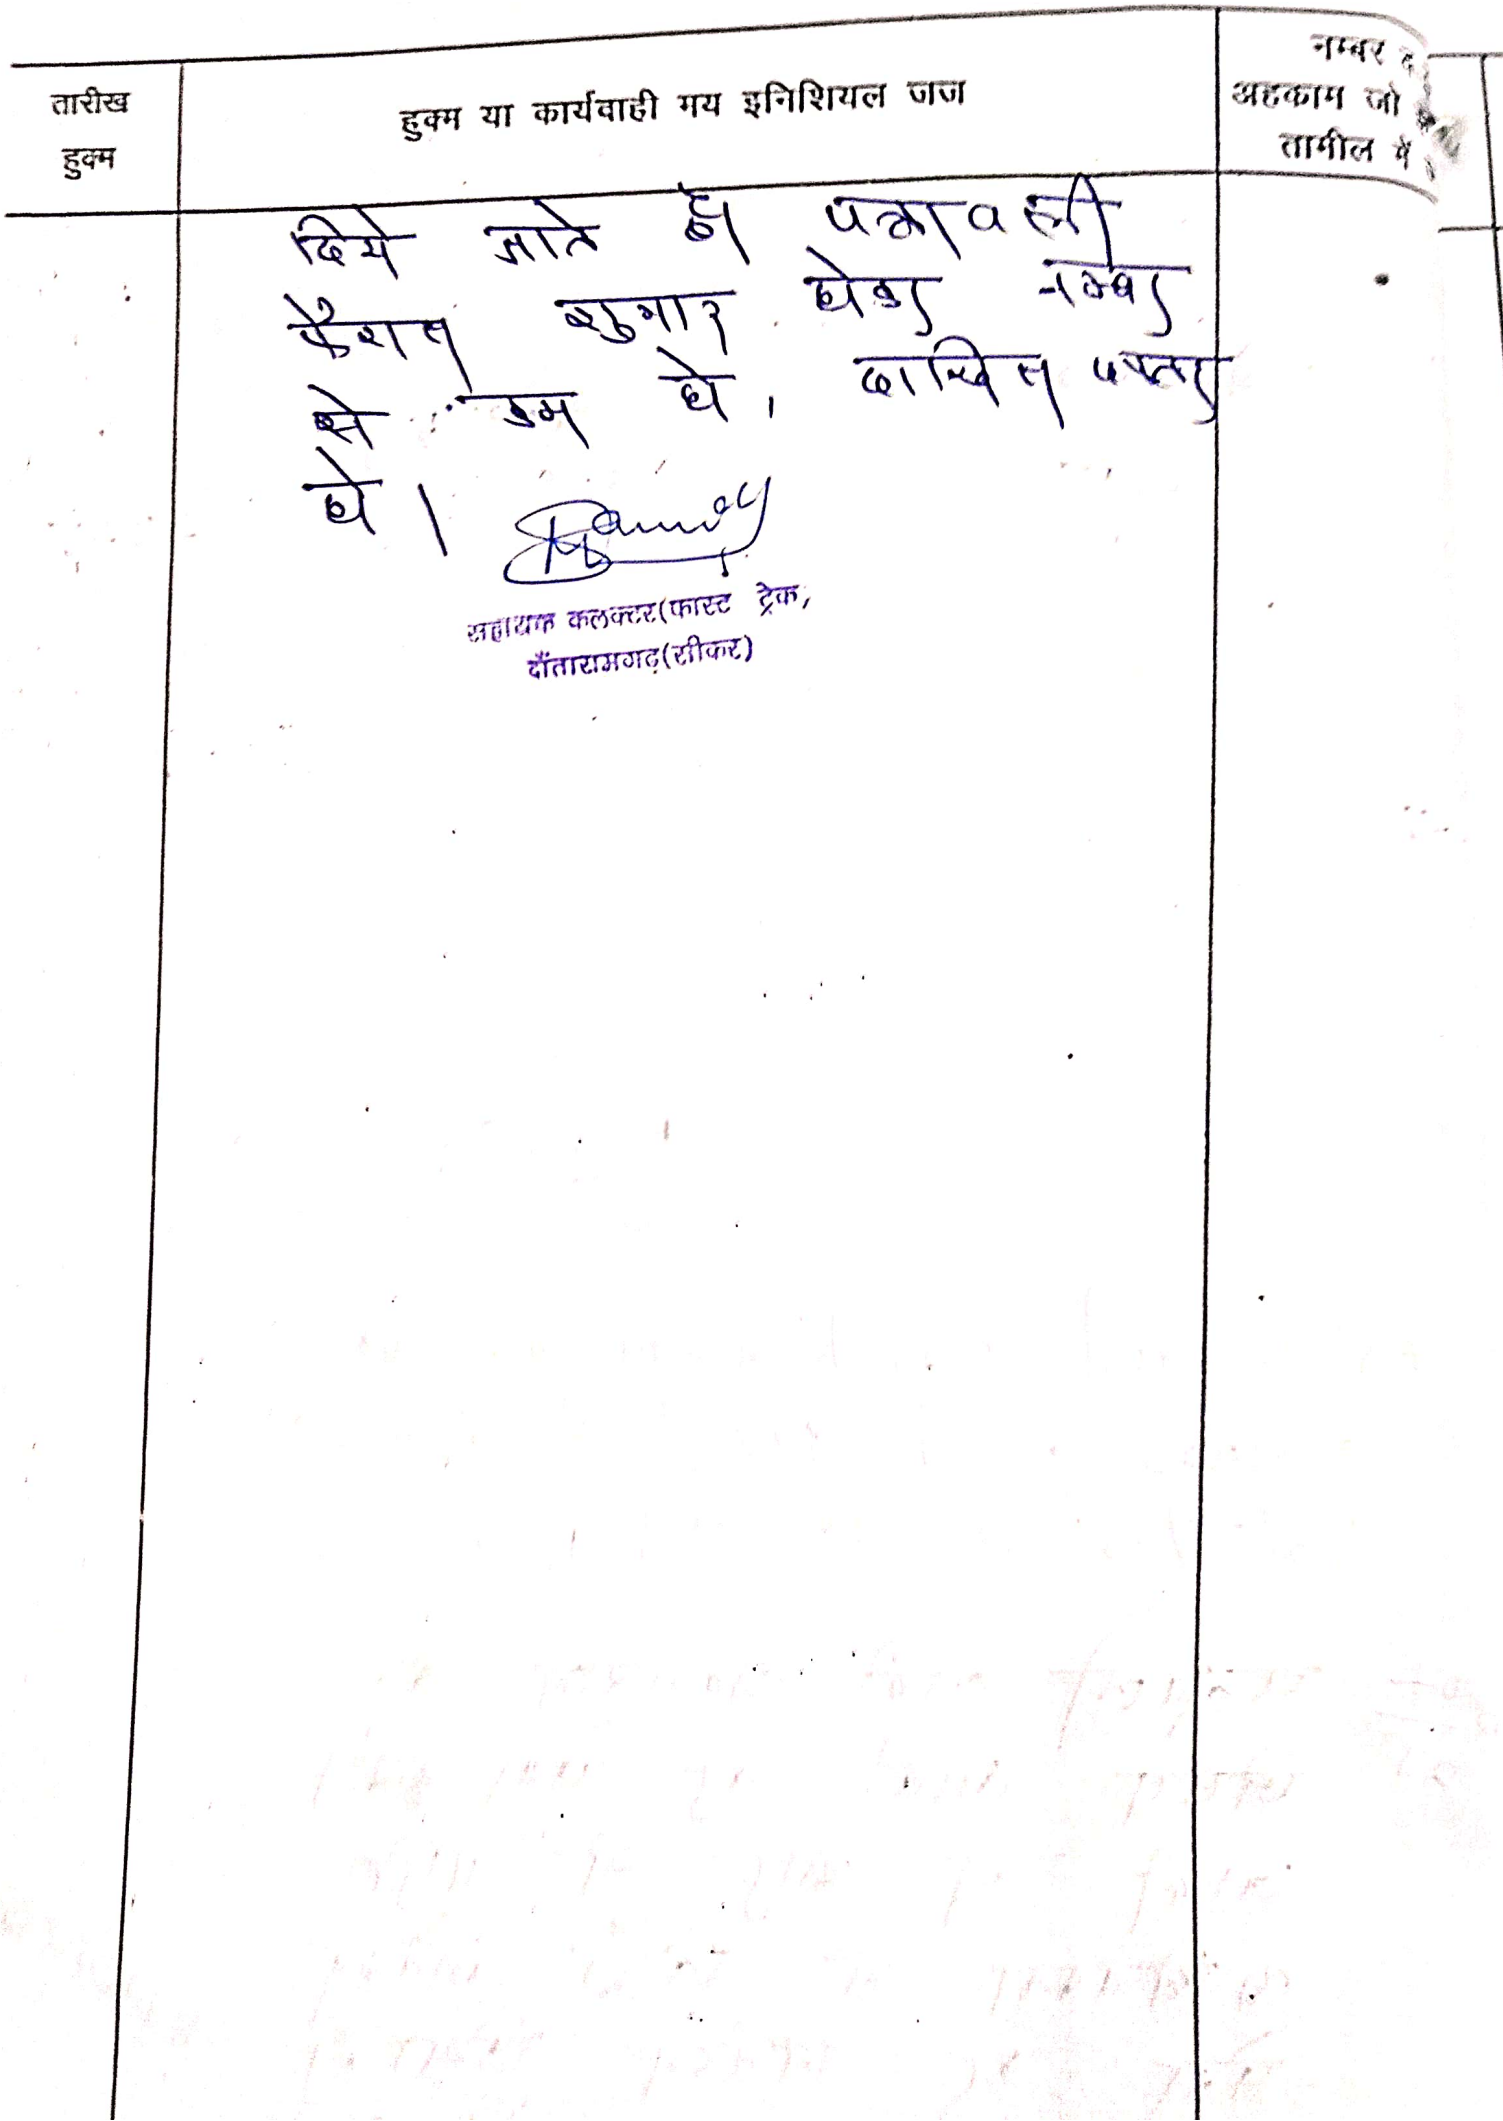 तारीख
हुक्म
हुक्म या कार्यवाही मय इनिशियल जज
नम्बर
अहकाम जो
तामील में
दिये जाते है। पत्रावली
फैशल शुमार होकर नम्बर
से कम हो। दाखिल दफ्तर
हो।
सहायक कलक्टर(फास्ट ट्रेक,
दाँतारामगढ़(सीकर)